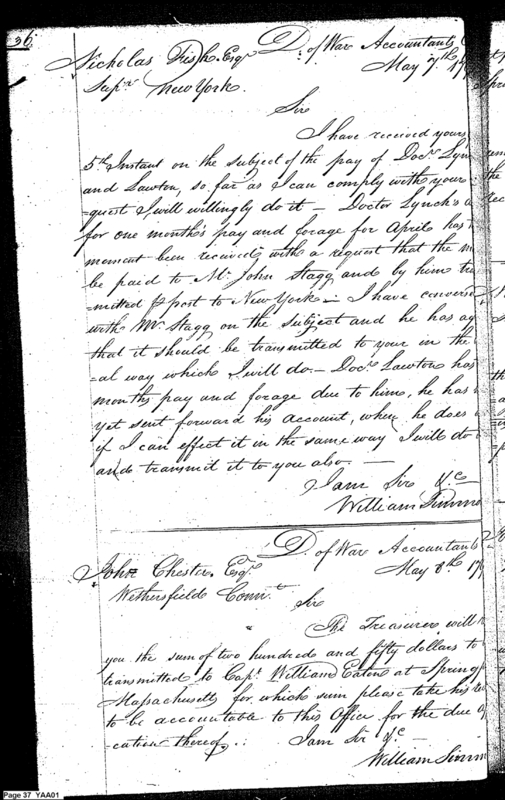 36
D. of War Accountants
Nicholas Fish Esqr.
May 7th 17
Supr. New York.
Sir
I have received yours
5th Instant on the subject of the pay of Docrs. Lyn
and Lawton, so far as I can comply with your
=quest I will willingly do it — Doctor Lynch's a
for one month's pay and forage for April has
moment been received with a request that the m
be paid to Mr. John Stagg and by him tra
=mitted p post to New York — I have converse
with Mr. Stagg on the subject and he has ag
that it should be transmitted to your in the
=al way which I will do. — Docr. Lawton has
months pay and forage due to him, he has
yet sent forward his account, when he does
if I can effect it in the same way I will do
and transmit it to you also. —
I am Sir &c
William Simmo
D. of War Accountants
John Chester Esqr.
May 8th 179
Wethersfield Connt.
Sir
The Treasurer will
you the sum of two hundred and fifty dollars to
transmitted to Capt. William Eaton at Spring
Massachusetts for which sum please take his re
to be accountable to this Office for the due
=cation thereof.. I am Sir &c
William Simm
Page 37 YAA01